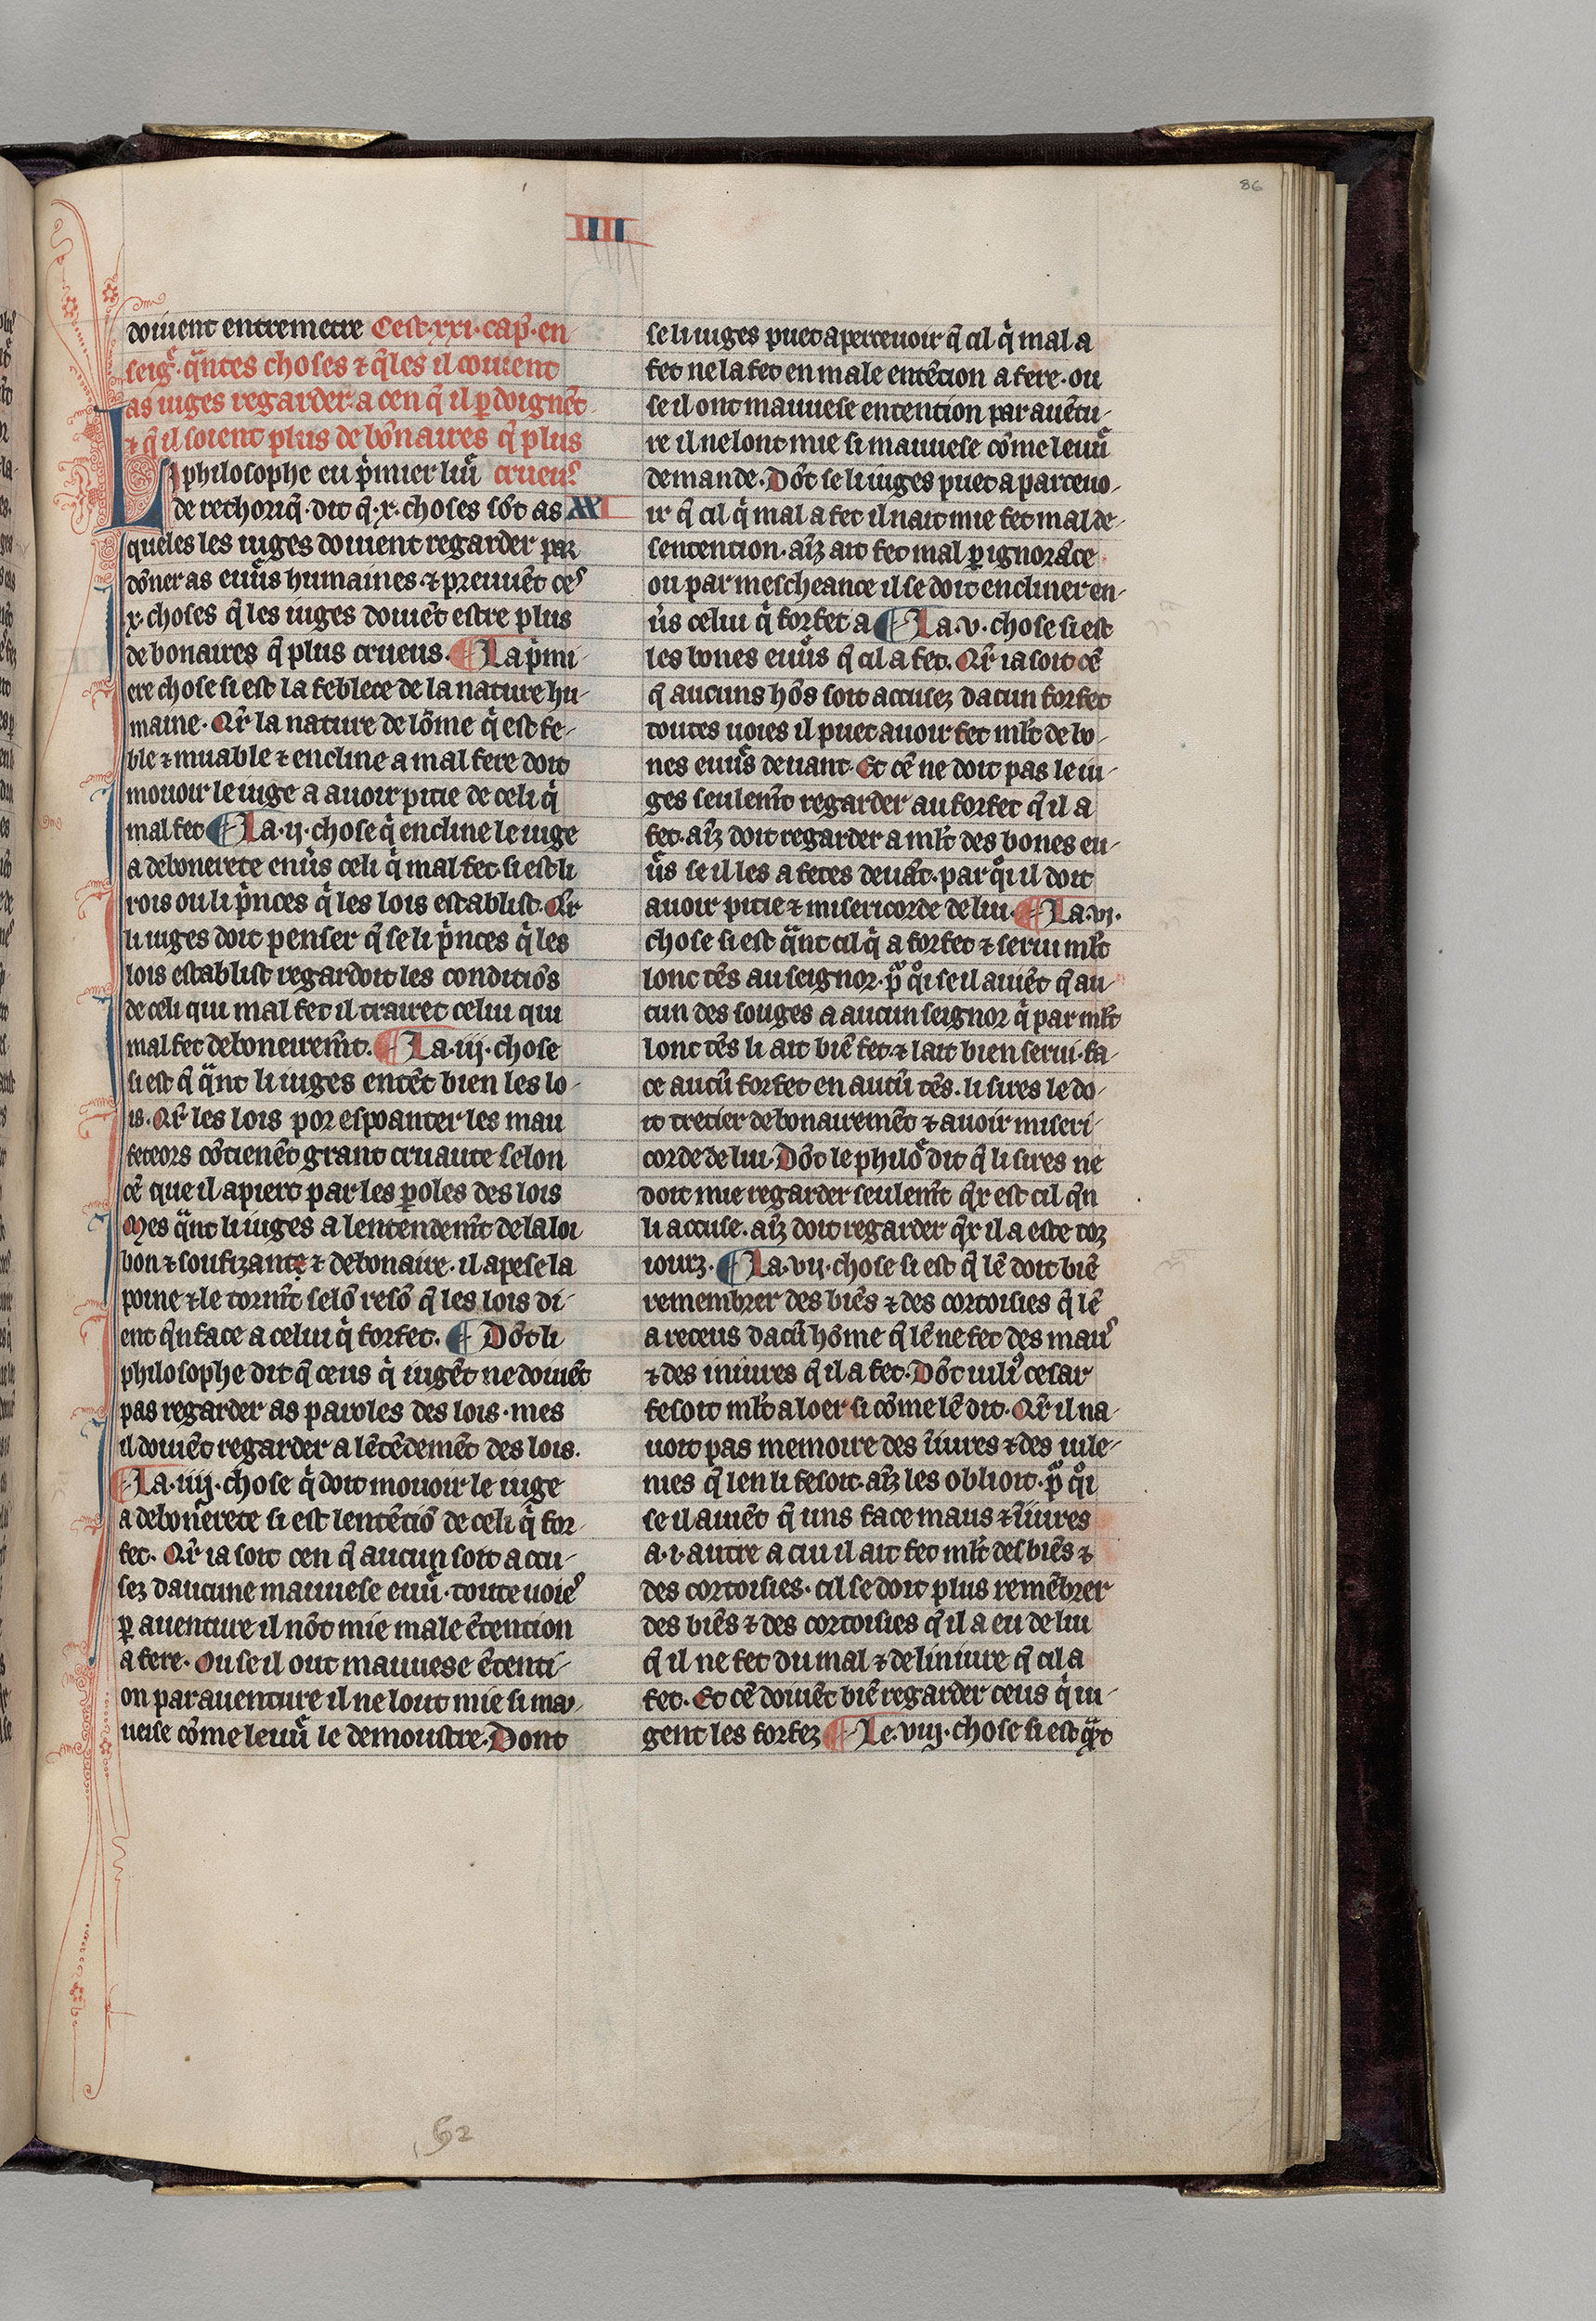 86
IIII
doiuent entremetre Cest .xxi. cap̃. en-
seig̃. q̃ntes choses ⁊ q̃les il couient
as iuges regarder. a cen q̃ il ꝑdoignẽt
⁊ q̃ il soient plus debõnaires q̃ plus
Li philosophe eu p̃mier liũ crueus
de rethoriq̃. dit q̃ .x. choses sõt as XXI
queles les iuges doiuent regarder par
dõner as euũs humaines. ⁊ preuuẽt ces
.x. choses q̃ les iuges doiuẽt estre plus
debonaires q̃ plus crueus. ¶ La p̃mi-
ere chose si est la feblece de la nature hu-
maine. Q̃r la nature de lõme q̃ est fe-
ble ⁊ muable ⁊ encline a mal fere doit
mouoir le iuge a auoir pitie de celi q̃
mal fet ¶ La .ij. chose q̃ encline le iuge
a debonerete enũs celi q̃ mal fet. si est li
rois ou li p̃nces q̃ les lois establist. Q̃r
li iuges doit penser q̃ se li p̃nces q̃ les
lois establist regardoit les conditiõs
de celi qui mal fet il trairet celui qui
mal fet deboneirem̃t. ¶ La .iij. chose
si est q̃ q̃nt li iuges entẽt bien les lo-
is. Q̃r les lois por espoanter les mau
feteors cõtienẽt grant cruaute selon
cẽ que il apiert par les ꝑoles des lois
Mes q̃nt li iuges a lentendem̃t de la loi
bon ⁊ soufizante ⁊ debonaire. il apese la
poine ⁊ le torm̃t selõ resõ q̃ les lois di-
ent q̃n face a celui q̃ forfet. ¶ Dõt li
philosophe dit q̃ ceus q̃ iugẽt ne doiuẽt
pas regarder as paroles des lois. mes
il doiuẽt regarder a lẽtẽdemẽt des lois.
¶ La .iiij. chose q̃ doit mouoir le iuge
a debonerete si est lentẽciõ de celi q̃ for-
fet. Q̃r ia soit cen q̃ aucun soit accu-
sez daucune mauuese euũ. toute uoies
ꝑ auenture il nõt mie male ẽtention
a fere. Ou se il out mauuese ẽtenti-
on par auenture il ne lout mie si ma-
uese cõme leuũ le demoustre. Dont
se li iuges puet apertceuoir q̃ cil q̃ mal a
fet ne la fet en male entẽcion a fere. ou
se il ont mauuese entention par auẽtu-
re il ne lont mie si mauuese cõme leuũ
demande. Dõt se li iuges puet a parceuo-
ir q̃ cil q̃ mal a fet il nait mie fet mal de
sentention. aĩz ait fet mal ꝑ ignorãce
ou par mescheance il se doit encliner en-
ũs celui q̃ forfet a ¶ La .v. chose si est
les bones euũs q̃ cil a fet. Q̃r ia soit cẽ
q̃ aucuns hõs soit accusez dacun forfet
toutes uoies il puet auoir fet ml̃t de bo-
nes euũs deuant. Et cẽ ne doit pas le iu-
ges seulem̃t regarder au forfet q̃ il a
fet. aĩz doit regarder a ml̃t des bones eu-
ũs se il les a fetes deuãt. par q̃i il doit
auoir pitie ⁊ misericorde de lui. ¶ La .vj.
chose si est q̃nt cil q̃ a forfet ⁊ serui ml̃t
lonc tẽs au seignor. p̃ q̃i se il auiẽt q̃ au-
cun des souges a aucun seignor q̃ par ml̃t
lonc tẽs li ait biẽ fet ⁊ lait bien serui. fa-
ce aucũ forfet en aucũ tẽs. li sires le do-
it tretier debonairemẽt ⁊ auoir miseri-
corde de lui. Dõt le philõ dit q̃ li sires ne
doit mie regarder seulem̃t q̃x est cil q̃n
li accuse. aĩz doit regarder q̃x il a este toz
iourz. ¶ La .vij. chose si est q̃ lẽ doit biẽ
remembrer des biẽs ⁊ des cortoisies q̃ lẽ
a receus dacũ hõme q̃ lẽ ne fet des maus
⁊ des iniures q̃ il a fet. Dõt iulius cesar
fesoit ml̃t a loer si cõme lẽ dit. Q̃r il na-
uoit pas memoire des iĩures ⁊ des uile-
nies q̃ len li fesoit. aĩz les oblioit. p̃ q̃i
se il auiẽt q̃ uns face maus ⁊ iĩures
a .i. autre a cui il ait fet ml̃t des biẽs ⁊
des cortoisies. cil se doit plus remẽbrer
des biẽs ⁊ des cortoisies q̃ il a eu de lui
q̃ il ne fet du mal ⁊ de liniure q̃ cil a
fet. Et cẽ doiuẽt biẽ regarder ceus q̃ iu-
gent les forfez ¶ Le .viij. chose si est q̃t
62